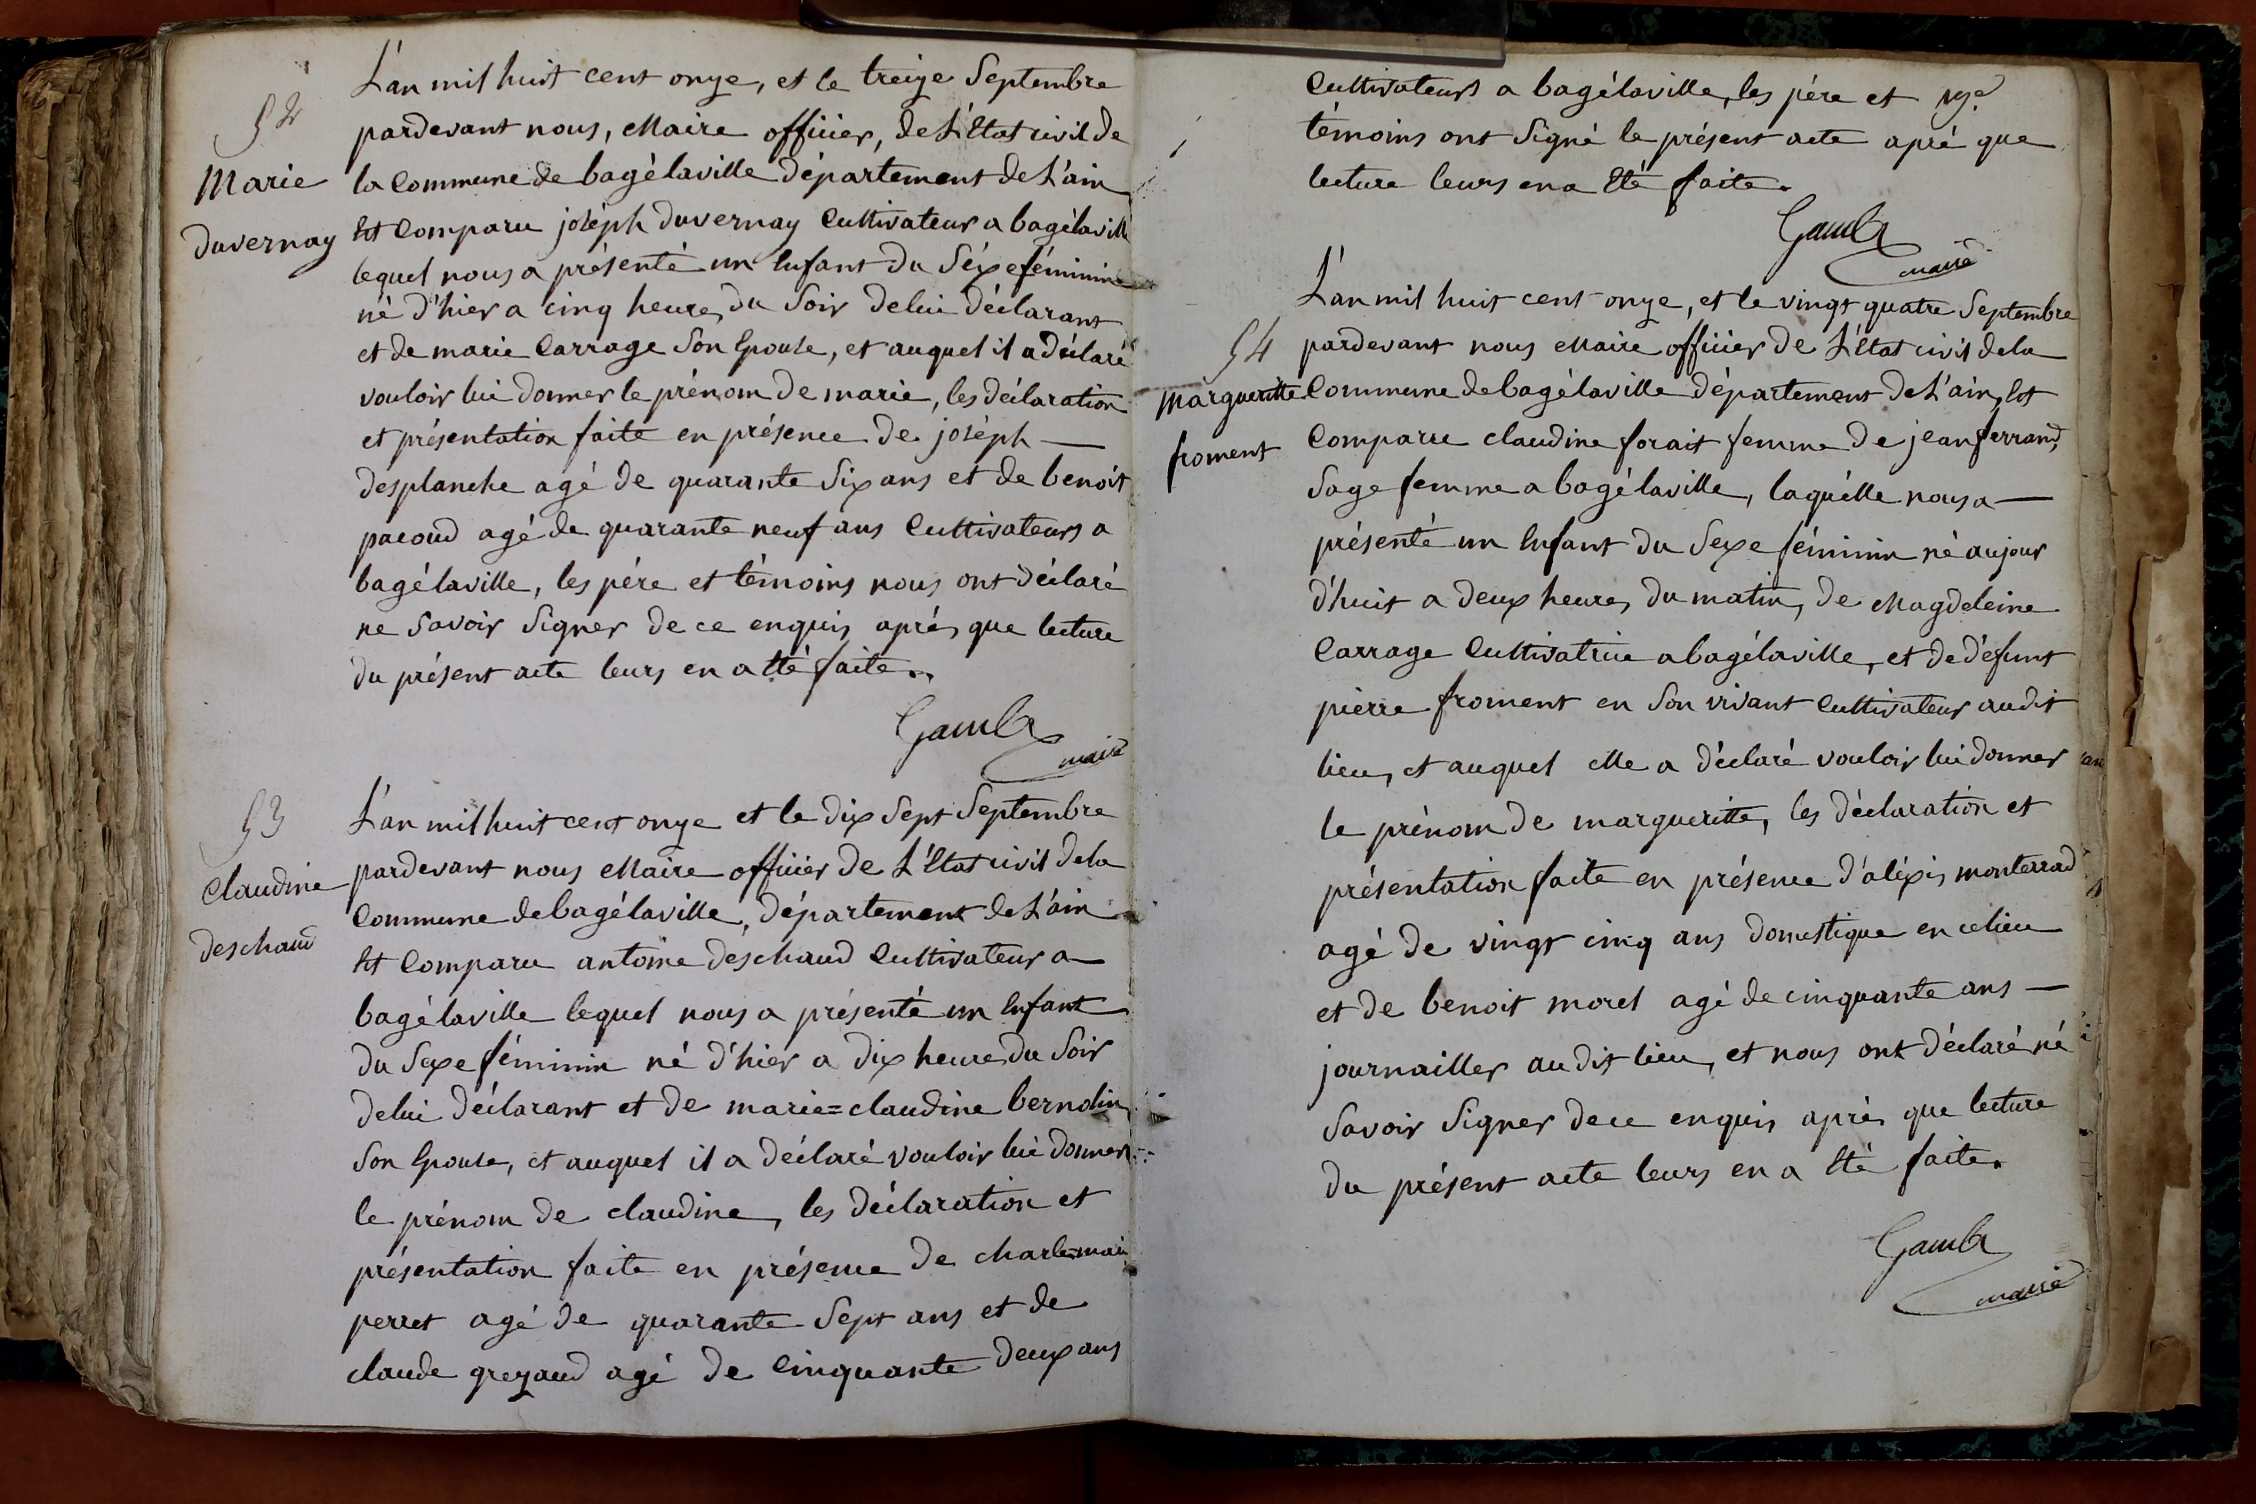 52
Marie
duvernay
L'an mil huit cent onze, et le treize Septembre
pardevant nous, Maire officier, de L'Etat civil de
la Commune de bagélaville département de L'ain
Est Comparu joséph duvernay Cultivateur a bagélaville
lequel nous a présenté un Enfant du Séxe féminine
né d'hier a cinq heures du Soir de lui déclarant
et de marie Carrage Son Epouse, et auquel il a déclaré
vouloir lui donner le prénom de marie, les déclaration
et présentation faite en présence de joséph —
desplanche agé de quarante Six ans et de benoit
pacoud agé de quarante neuf ans Cultivateurs a
bagélaville, les pére et témoins nous ont déclaré
ne Savoir Signer de ce enquis aprés que lecture
du présent acte leurs en a Eté faite.
Gamba
maire
53
Claudine
deschaud
L'an mil huit cent onze et le dix Sept Septembre
pardevant nous Maire officier de L'Etat civil de la
Commune de bagélaville, département de L'ain
Est Comparu antoine deschaud Cultivateur a
bagélaville lequel nous a présenté un Enfant
du Sexe féminin né d'hier a dix heures du Soir
de lui déclarant et de marie=claudine bernolin
Son Epouse, et auquel il a déclaré vouloir lui donner
le prénom de claudine, les déclaration et
présentation faite en présence de charlemain
perret agé de quarante Sept ans et de
claude grezaud agé de Cinquante deux ans
Cultivateurs a bagélaville, les pére et
témoins ont Signé le présent acte apré que
lecture leurs en a Eté faite.
Gamba
maire
54
Margueritte
froment
L'an mil huit cent onze, et le vingt quatre Septembre
pardevant nous Maire officier de L'Etat civil de la
Commune de bagélaville département de L'ain, Est
Comparue claudine forait femme de jean ferrand,
Sage femme a bagélaville, laquélle nous a —
présenté un Enfant du Sexe féminin né aujour
d'huit a deux heures du matin, de Magdeleine
Carrage Cultivatrice a bagélaville, et de défunt
pierre froment en Son vivant Cultivateur audit
lieu, et auquel elle a déclaré vouloir lui donner
le prénom de margueritte, les déclaration et
présentation faite en présence d'aléxis monterrad
agé de vingt cinq ans domestique en ce lieu
et de benoit morel agé de cinquante ans —
journailler au dit lieu, et nous ont déclaré né
Savoir Signer de ce enquis aprés que lecture
du présent acte leurs en a Eté faite.
Gamba
maire